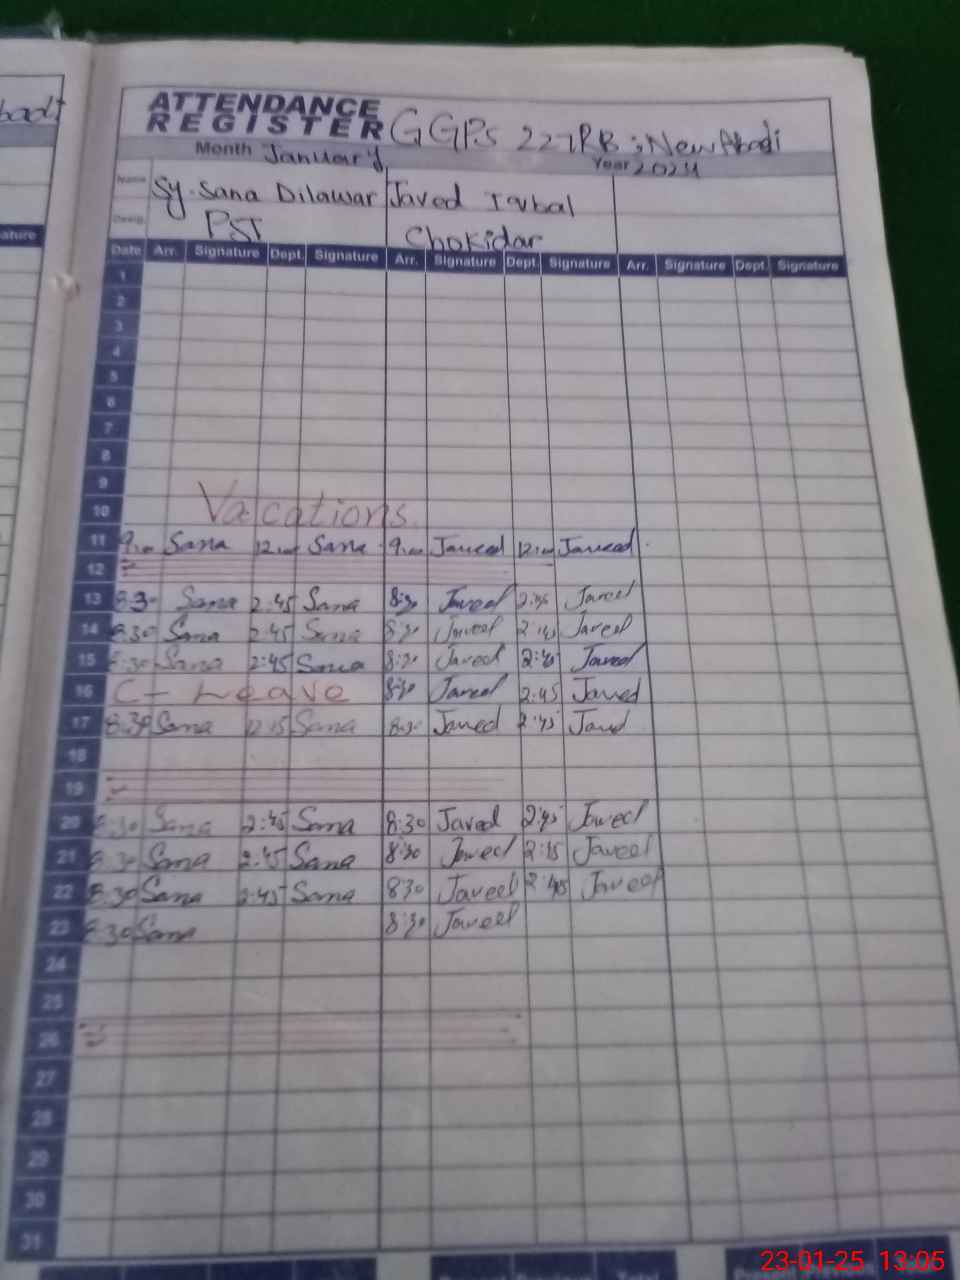 ATTENDANCE
REGISTER GGPS 227RB ; New Abadi
Month January Year 2024
Name Sy. Sana Dilawar Javed Iqbal
Desig. PST Chokidar
Date Arr. Signature Dept. Signature Arr. Signature Dept. Signature Arr. Signature Dept. Signature
1
2
3
4
5
6
7
8
9
10 Vacations
11 9:00 Sana 12:00 Sana 9:00 Javeed 12:00 Javeed
12
13 8:30 Sana 2:45 Sana 8:30 Javed 2:45 Javed
14 8:30 Sana 2:45 Sana 8:30 Javeed 2:45 Javed
15 8:30 Sana 2:45 Sana 8:30 Javed 2:45 Javed
16 C-Leave 8:30 Javed 2:45 Javed
17 8:30 Sana 12:15 Sana 8:30 Javed 2:45 Javed
18
19
20 8:30 Sana 2:45 Sana 8:30 Javed 2:45 Javeed
21 8:30 Sana 2:45 Sana 8:30 Javeed 2:45 Javeed
22 8:30 Sana 2:45 Sana 830 Javeed 2:45 Javeed
23 8:30 Sana 8:30 Javeed
24
25
26
27
28
29
30
31
23-01-25 13:05